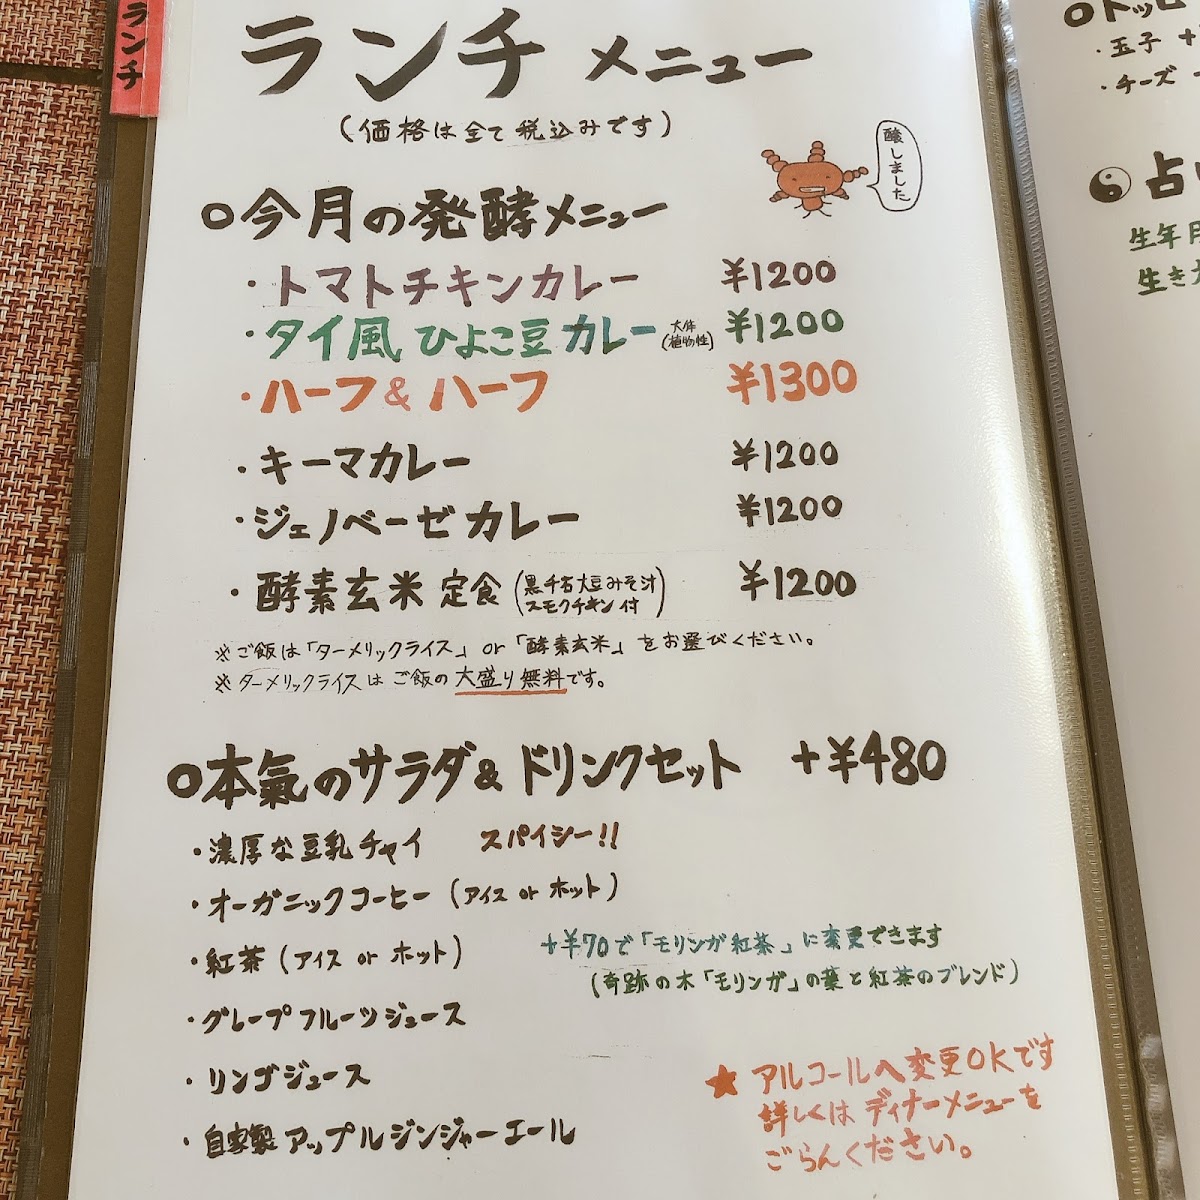 ランチ
ランチ メニュー
(価格は全て税込みです)
酸しました
○今月の発酵メニュー
・トマトチキンカレー ¥1200
・タイ風 ひよこ豆カレー (大体植物性) ¥1200
・ハーフ&ハーフ ¥1300
・キーマカレー ¥1200
・ジェノベーゼカレー ¥1200
・酵素玄米 定食 (黒千石大豆みそ汁 スモークチキン付) ¥1200
※ご飯は「ターメリックライス」or「酵素玄米」をお選びください。
※ターメリックライスはご飯の大盛り無料です。
○本氣のサラダ&ドリンクセット +¥480
・濃厚な豆乳チャイ スパイシー!!
・オーガニックコーヒー (アイス or ホット)
・紅茶 (アイス or ホット)
+¥70で「モリンガ紅茶」に変更できます
(奇跡の木「モリンガ」の葉と紅茶のブレンド)
・グレープフルーツジュース
・リンゴジュース
・自家製アップルジンジャーエール
★アルコールへ変更OKです
詳しくはディナーメニューを
ごらんください。
・玉子 +
・チーズ
占
生年月
生き